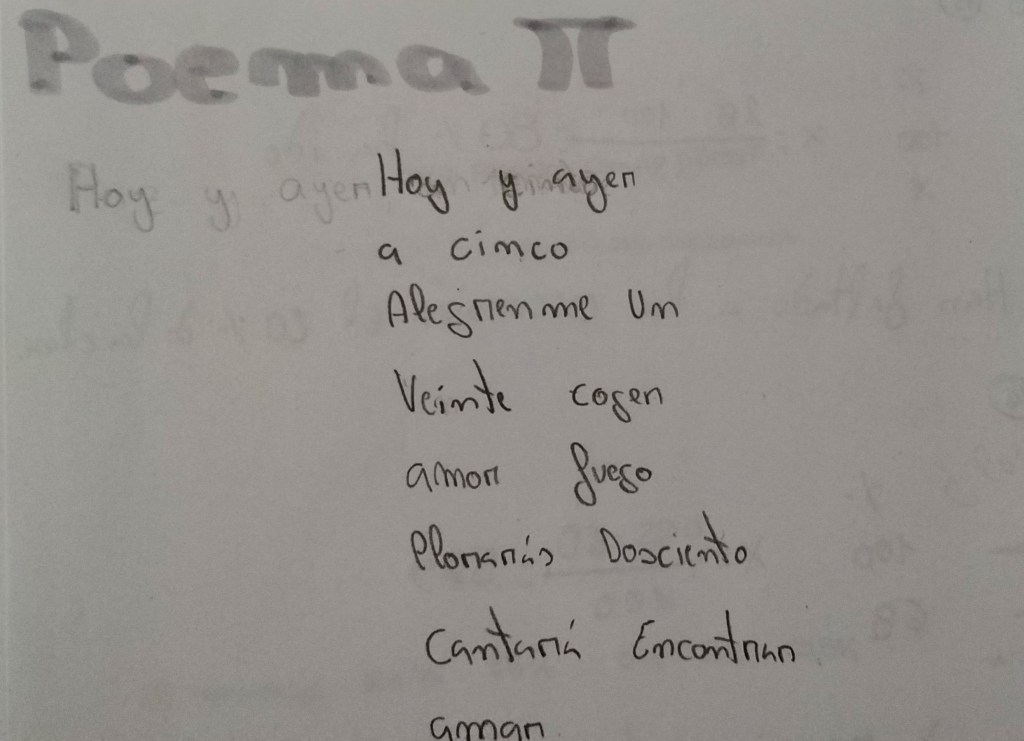 Poema π
Hoy y ayer
Hoy y ayer
a cinco
Alegrenme un
Veinte coger
amor fuego
llorarás Dosciento
Cantará Encontrar
amar